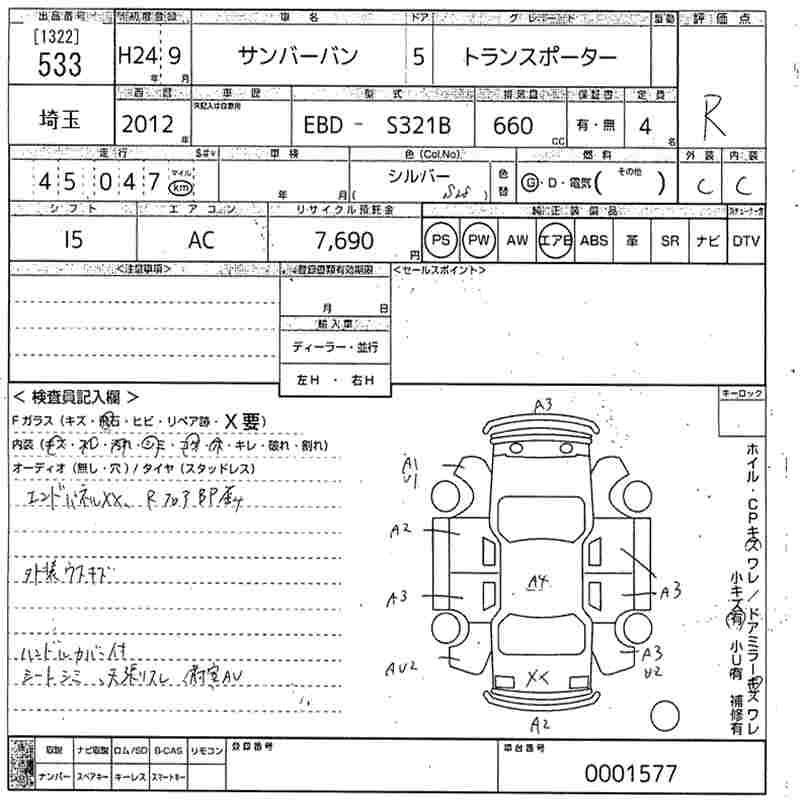 出品番号 初度登録 車名 ドア グレード 評価点
[1322]
533 H24 年 9 月 サンバーバン 5 トランスポーター R
西暦 車歴 型式 排気量 保証書 定員
埼玉 2012 年 EBD - S321B 660 cc 有・無 4 名
走行 車検 色(Col,No) 燃料 外装 内装
45047 マイル km 年 月 シルバー ( S28 ) 色替 G・D・電気( その他 ) C C
シフト エアコン リサイクル預託金 純正装備品
I5 AC 7,690 円 PS PW AW エアB ABS 革 SR ナビ DTV
<注意事項> 登録書類有効期限 <セールスポイント>
月 日
輸入車
ディーラー・並行
左H ・ 右H
< 検査員記入欄 > キーロック
Fガラス (キズ・飛石・ヒビ・リペア跡・X要)
内装 (キズ・スレ・汚れ・シミ・コゲ・穴・キレ・破れ・割れ)
オーディオ (無し・穴) / タイヤ (スタッドレス)
エンドパネルXX、
外装ウスキズ
ハンドルカバー付
シートシミ
A3
A1
U1
A2
A3
AU2
A4
XX
A3
A3
U2
A2
ホイル・CPキズワレ/ドアミラーキズワレ
小キズ有 小U有 補修有
取説 ナビ取説 ロム/SD B-CAS リモコン 登録番号 車台番号
ナンバー スペアキー キーレス スマートキー 0001577